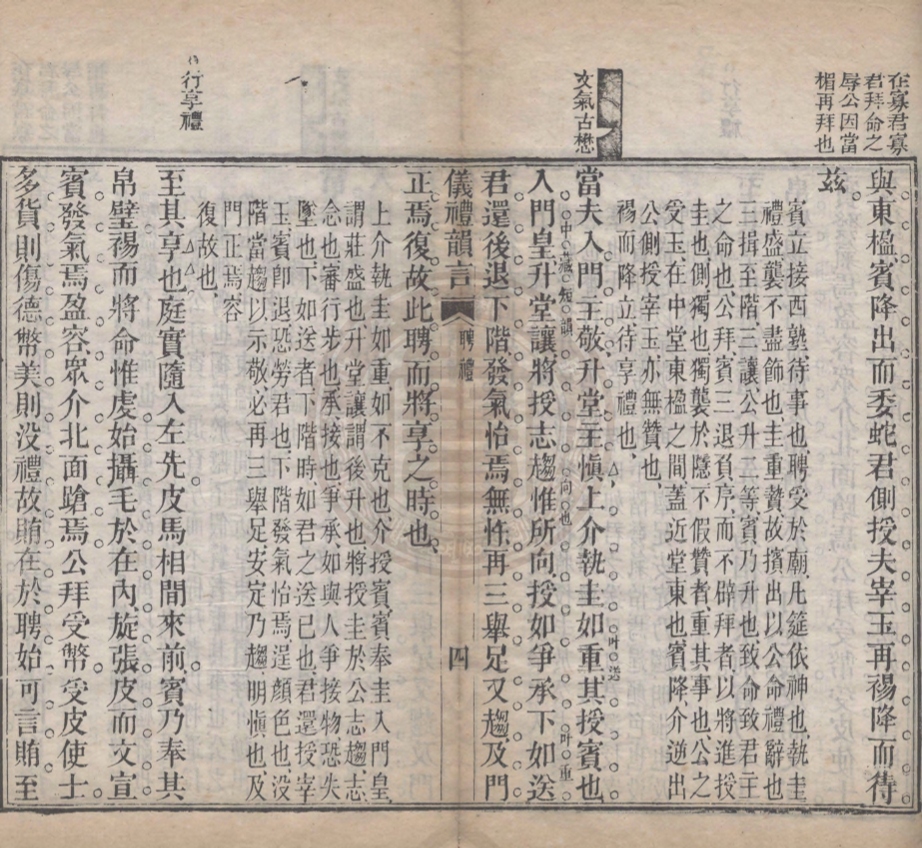 在寡君寡
君拜命之
辱公因當
楣再拜也
與東楹賓降出而委蛇君側授夫宰玉再裼降而待
茲
賓立接西塾待事也聘受於廟凡筵依神也執圭
禮盛襲不盡飾也圭重贄故擯出以公命禮辭也
三揖至階三讓公升二等賓乃升也致命致君主
之命也公拜賓三退負序而不辟拜者以將進授
圭也側獨也獨襲於隱不假贊者重其事也公之
受玉在中堂東楹之間蓋近堂東也賓降介逆出
公側授宰玉亦無贊也
裼而降立待享禮也
文氣古懋
當夫入門主敬升堂主愼上介執圭如重其授賓也
入門皇升堂讓將授志趨惟所向授如爭承下如送
君還後退下階發氣怡焉無忤再三舉足又趨及門
儀禮韻言 聘禮 四
正焉復故此聘而將享之時也
上介執圭如重如不克也介授賓賓奉圭入門皇
謂莊盛也升堂讓謂後升也將授圭於公志趨志
念也審行步也承接也爭承如與人爭接物恐失
墜也下如送者下階時如君之送已也君還授宰
玉賓卽退恐勞君也下階發氣怡焉逞顏色也沒
階當趨以示敬必再三舉足安定乃趨明愼也及
門正焉容
復故也
行享禮
至其享也庭實隨入左先皮馬相間來前賓乃奉其
帛璧裼而將命惟處始攝毛於在內旋張皮而文宣
賓發氣焉盈容眾介北面蹌焉公拜受幣受皮使士
多貨則傷德幣美則沒禮故賄在於聘始可言賄至